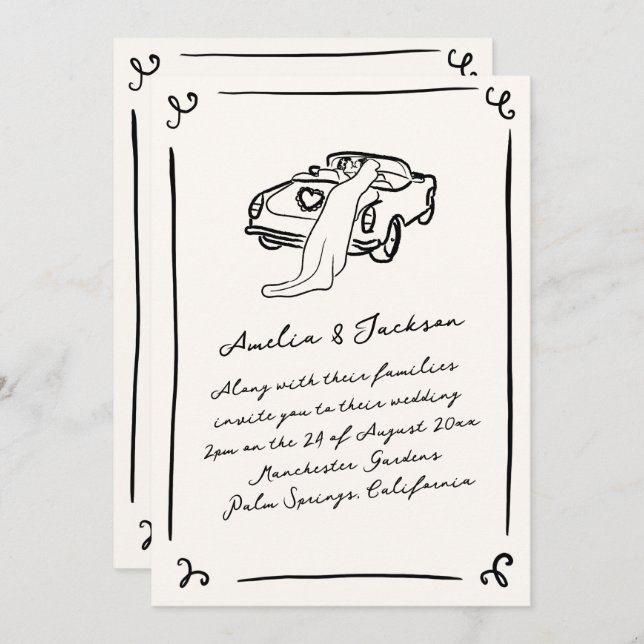 Amelia & Jackson
Along with their families
invite you to their wedding
2pm on the 24 of August 20xx
Manchester Gardens
Palm Springs, California